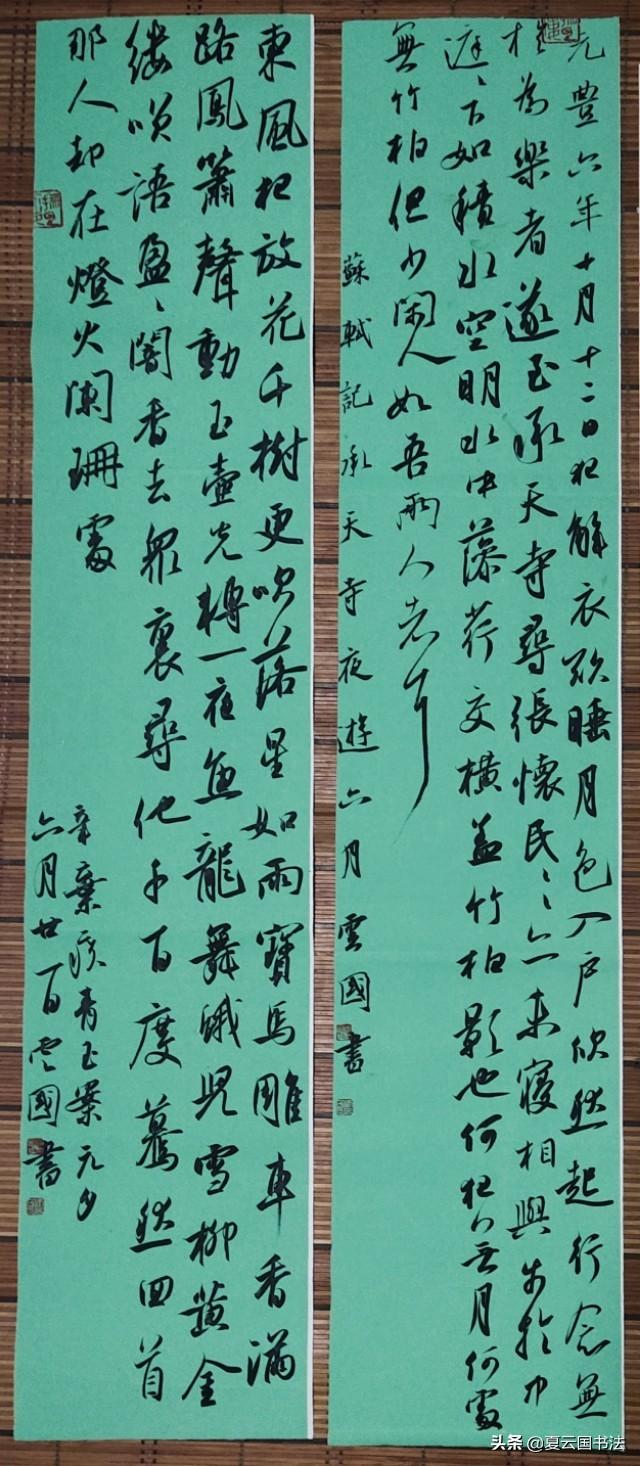 元豐六年十月十二日夜解衣欲睡月色入戶欣然起行念無
為樂者遂至承天寺尋張懷民〻亦未寢相與步於中
庭〻下如積水空明水中藻荇交橫蓋竹柏影也何夜〻无月何處
無竹柏但少閑人如吾兩人者耳
蘇軾記承天寺夜遊六月雲國書
東風夜放花千樹更吹落星如雨寶馬雕車香滿
路鳳簫聲動玉壺光轉一夜魚龍舞蛾兒雪柳黃金
縷笑語盈〻闇香去衆裏尋他千百度驀然回首
那人却在燈火闌珊處
辛棄疾青玉案元夕
六月廿一日雲國書
头条 @夏云国书法